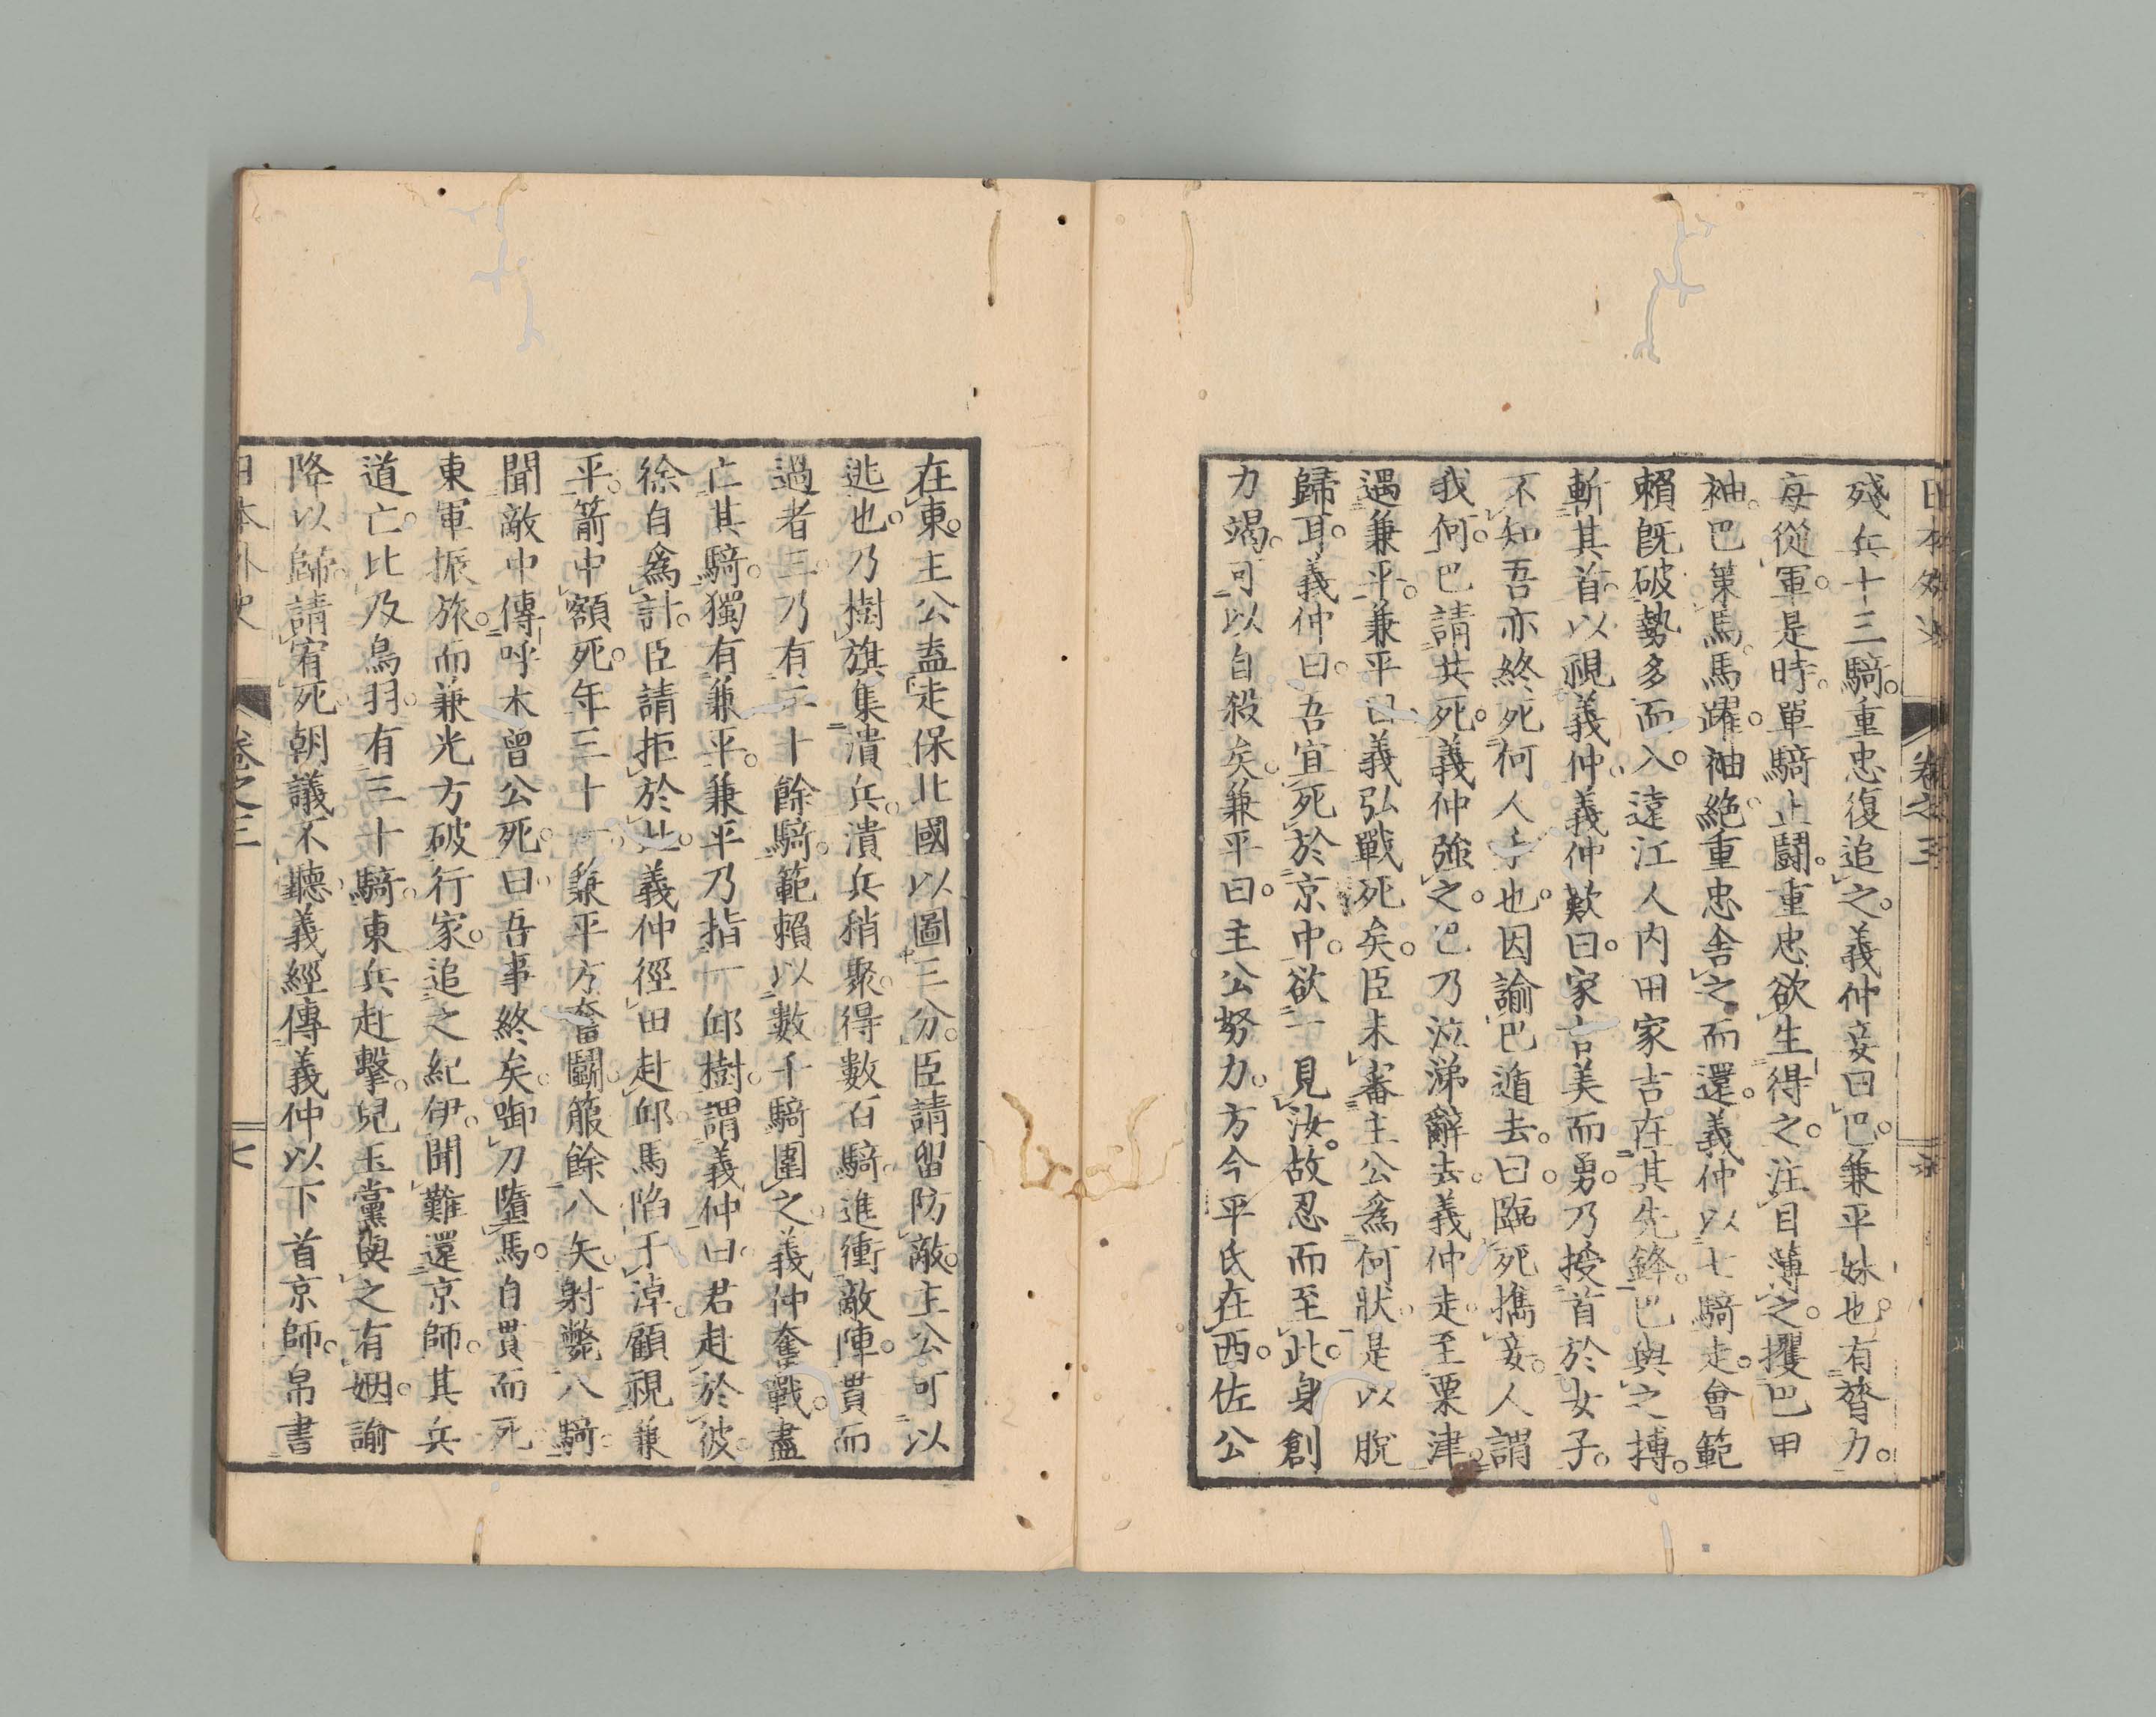 日本外史 卷之三
殘兵十三騎。重忠復追之。義仲妾曰巴。兼平妹也。有膂力。
每從軍。是時。單騎止鬪。重忠欲生得之。注目薄之。攫巴甲
袖。巴策馬。馬躍。袖絶。重忠舍之而還。義仲以七騎走。會範
賴既破勢多而入。遠江人内田家吉在其先鋒。巴與之搏。
斬其首。以視義仲。義仲歎曰。家吉美而勇。乃授首於女子。
不知吾亦終死何人手也。因諭巴遁去。曰。臨死攜妾。人謂
我何。巴請共死。義仲強之。巴乃泣涕辭去。義仲走。至粟津。
遇兼平。兼平曰。義弘戰死矣。臣未審主公爲何狀。是以脫
歸耳。義仲曰。吾宜死於京中。欲一見汝。故忍而至此。身創
力竭。可以自殺矣。兼平曰。主公努力。方今平氏在西。佐公
在東。主公盍走保北國以圖三分。臣請留防敵。主公可以
逃也。乃樹旗集潰兵。潰兵稍聚。得數百騎。進衝敵陣。貫而
過者三。乃有三十餘騎。範賴以數千騎圍之。義仲奮戰。盡
亡其騎。獨有兼平。兼平乃指一邱樹。謂義仲曰。君赴於彼。
徐自爲計。臣請拒於此。義仲徑田赴邱。馬陷于淖。顧視兼
平。箭中額死。年三十一。兼平方奮鬪。箙餘八矢。射斃八騎。
聞敵中傳呼木曾公死。曰。吾事終矣。啣刀墮馬。自貫而死。
東軍振旅。而兼光方破行家。追之紀伊。聞難還京師。其兵
道亡。比及鳥羽。有三十騎。東兵赴擊。兒玉黨與之有姻。諭
降以歸。請宥死。朝議不聽。義經傳義仲以下首京師。帛書
日本外史 卷之三 七